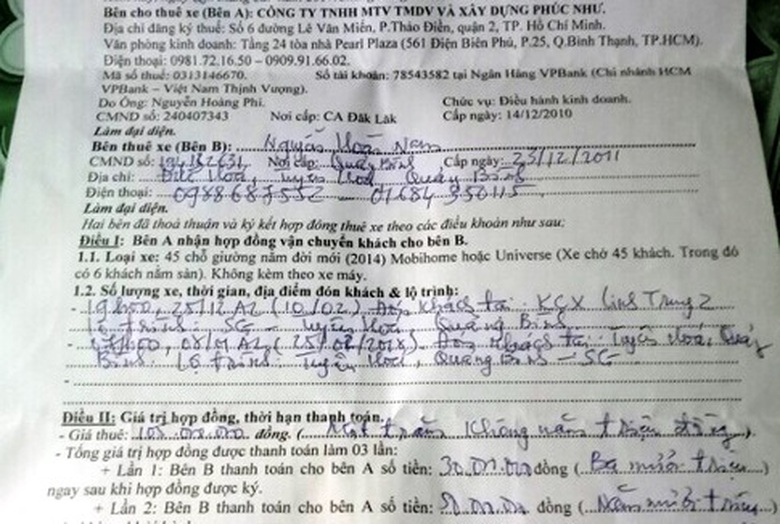 Bên cho thuê xe (Bên A): CÔNG TY TNHH MTV TMDV VÀ XÂY DỰNG PHÚC NHƯ.
Địa chỉ đăng ký thuế: Số 6 đường Lê Văn Miến, P.Thảo Điền, quận 2, TP. Hồ Chí Minh.
Văn phòng kinh doanh: Tầng 24 tòa nhà Pearl Plaza (561 Điện Biên Phủ, P.25, Q.Bình Thạnh, TP.HCM).
Điện thoại: 0981.72.16.50 – 0909.91.66.02.
Mã số thuế: 0313146670. Số tài khoản: 78543582 tại Ngân Hàng VPBank (Chi nhánh HCM
VPBank – Việt Nam Thịnh Vượng).
Do Ông: Nguyễn Hoàng Phi. Chức vụ: Điều hành kinh doanh.
CMND số: 240407343 Nơi cấp: CA Đăk Lăk Cấp ngày: 14/12/2010
Làm đại diện.
Bên thuê xe (Bên B): Nguyễn Hoài Nam
CMND số: 194182631 Nơi cấp: Quảng Bình Cấp ngày: 23/12/2011
Địa chỉ: Đức Hoá, Tuyên Hoá, Quảng Bình
Điện thoại: 0988687552 – 01684 350115
Làm đại diện.
Hai bên đã thoả thuận và ký kết hợp đồng thuê xe theo các điều khoản như sau:
Điều I: Bên A nhận hợp đồng vận chuyển khách cho bên B.
1.1. Loại xe: 45 chỗ giường nằm đời mới (2014) Mobihome hoặc Universe (Xe chở 45 khách. Trong đó
có 6 khách nằm sàn). Không kèm theo xe máy.
1.2. Số lượng xe, thời gian, địa điểm đón khách & lộ trình:
- 19h00, 25/12 AL (10/02) Đón khách tại KCX Linh Trung 2
Lộ trình: SG – Tuyên Hoá, Quảng Bình
- 17h00, 08/01 AL (23/02/2018) Đón khách tại Tuyên Hoá, Quảng
Bình Lộ trình: Tuyên Hoá, Quảng Bình – SG
-
Điều II: Giá trị hợp đồng, thời hạn thanh toán.
- Giá thuê: 105.000.000 đồng. (Một trăm không năm triệu đồng).
- Tổng giá trị hợp đồng được thanh toán làm 03 lần:
+ Lần 1: Bên B thanh toán cho bên A số tiền: 30.000.000 đồng (Ba mươi triệu)
ngay sau khi hợp đồng được ký.
+ Lần 2: Bên B thanh toán cho bên A số tiền: 50.000.000 đồng (Năm mươi triệu)